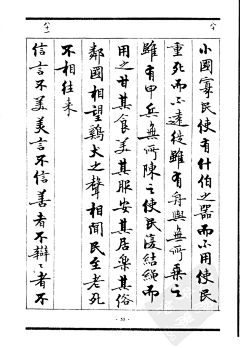 八十
小國寡民使有什伯之器而不用使民
重死而不遠徙雖有舟輿無所乘之
雖有甲兵無所陳之使民復結繩而
用之甘其食美其服安其居樂其俗
鄰國相望鷄犬之聲相聞民至老死
不相往來
八十一
信言不美美言不信善者不辯〻者不
· 53 ·